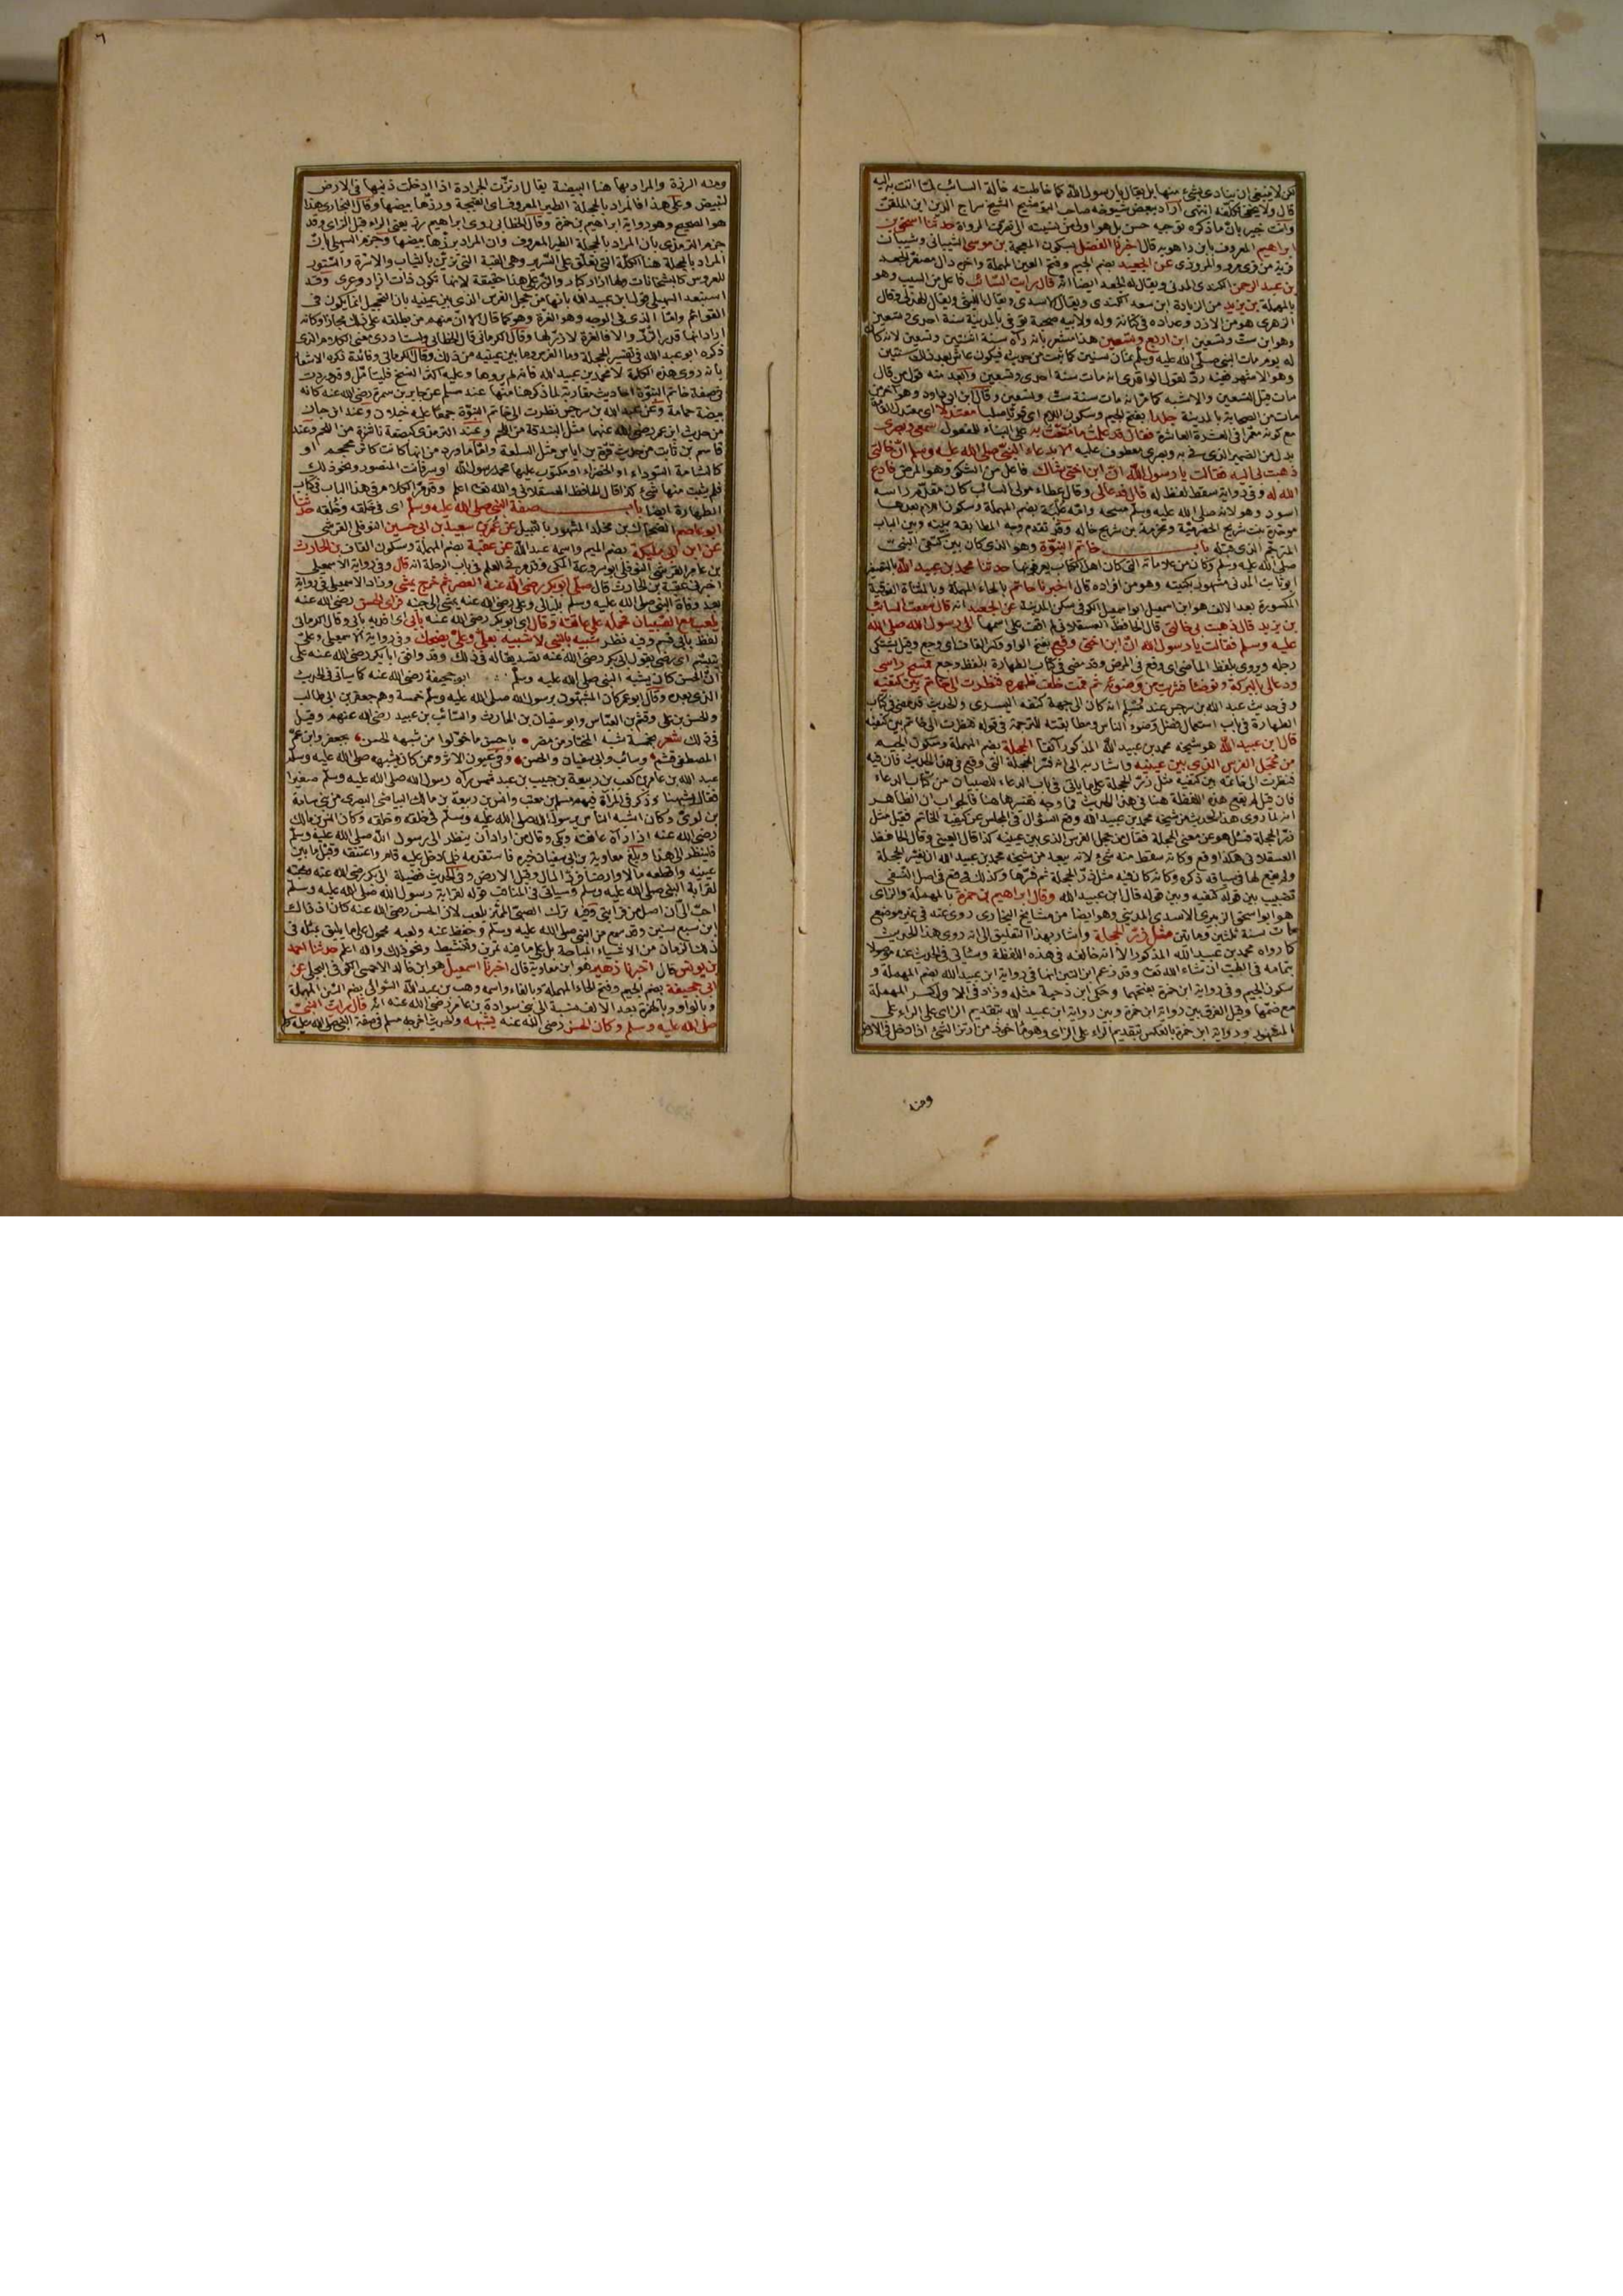 لكن لا ينبغي ان ينادى بشئ منها بل يقال يا رسول الله كما خاطبته خالة السائب لما اتت به اليه
قال ولا يخفى تكلفه انتهى اراد ببعض شيوخه صاحب التوضيح الشيخ سراج الدين ابن الملقن
وانت خبير بان ما ذكره توجيه حسن بل هو اولى من نسبته الى الرواة حدثنا اسحق بن
ابراهيم المعروف بابن راهويه قال اخبرنا الفضل بسكون المعجمة بن موسى الشيباني
قرية من قرى مرو والمروزي عن الجعيد بضم الجيم وفتح العين المهملة واخره دال مصغر الجعد
بن عبد الرحمن الكندي المدني ويقال له الجعد ايضا انه قال رايت السائب فاعل من السيب وهو
بالمهملة بن يزيد من الزيادة ابن سعد الكندي ويقال الاسدي ويقال الليثي ويقال الهذلي وقال
الزهري هو من الازد وعداده في كنانة وله ولابيه صحبة توفي بالمدينة سنة احدى وتسعين
وهو ابن ست وتسعين ابن اربع وتسعين هذا مشعر بانه رآه سنة اثنتين وتسعين لانه كان
له يوم مات النبي صلى الله عليه وسلم ثمان سنين كما ثبت من حديثه فيكون عاش بعد ذلك سنتين
وهو الاشهر ففيه رد لقول الواقدي انه مات سنة احدى وتسعين وابعد منه قول من قال
مات قبل التسعين والاشبه كما مر انه مات سنة ست وتسعين وقال ابن ابي داود وهو آخر من
مات من الصحابة بالمدينة جلدا بفتح الجيم وسكون اللام اي قويا صلبا معتدلا اي معتدل القامة
مع كونه معمرا في العشرة العاشرة فقال قد علمت ما متعت به على البناء للمفعول سمعي وبصري
بدل من الضمير الذي في به وبصري معطوف عليه الا بدعاء النبي صلى الله عليه وسلم ان خالتي
ذهبت بي اليه فقالت يا رسول الله ان ابن اختي شاك فاعل من الشكو وهو المرض فادع
الله له وفي رواية سقط لفظ له قال فدعا لي وقال عطاء مولى السائب كان مقدم راسه
اسود وهو لانه صلى الله عليه وسلم مسحه وامه علبة بضم المهملة وسكون اللام بعدها
موحدة بنت شريح الحضرمية ومخرمة بن شريح خاله وقد تقدم وجه المطابقة بينه وبين الباب
المترجم الذي قبله باب خاتم النبوة وهو الذي كان بين كتفي النبي
صلى الله عليه وسلم وكان من علاماته التي كان اهل الكتاب يعرفونه بها حدثنا محمد بن عبيد الله بالتصغير
ابو ثابت المدني مشهور بكنيته وهو من افراده قال اخبرنا حاتم بالحاء المهملة وبالمثناة الفوقية
المكسورة بعد الالف هو ابن اسمعيل ابو اسمعيل الكوفي سكن المدينة عن الجعيد انه قال سمعت السائب
بن يزيد قال ذهبت بي خالتي قال الحافظ العسقلاني لم اقف على اسمها الى رسول الله صلى الله
عليه وسلم فقالت يا رسول الله ان ابن اختي وقع بفتح الواو وكسر القاف اي وجع وقيل يشتكي
رجله ويروى بلفظ الماضي اي وقع في المرض وقد مضى في كتاب الطهارة بلفظ وجع فمسح راسي
ودعا لي بالبركة وتوضا فشربت من وضوئه ثم قمت خلف ظهره فنظرت الى خاتم بين كتفيه
وفي حديث عبد الله بن سرجس عند مسلم انه كان الى جهة كتفه اليسرى والحديث قد مضى في كتاب
الطهارة في باب استعمال فضل وضوء الناس ومطابقته للترجمة في قوله فنظرت الى خاتم بين كتفيه
قال ابن عبيد الله هو شيخه محمد بن عبيد الله المذكور آنفا الحجلة بضم المهملة وسكون الجيم
من حجل الفرس الذي بين عينيه واشار به الى انه فسر الحجلة التي وقع في هذا الحديث فان فيه
فنظرت الى خاتمه بين كتفيه مثل زر الحجلة على ما ياتي في باب الدعاء للصبيان من كتاب الدعاء
فان قيل لم يقع هذه اللفظة هنا في هذا الحديث فما وجه تفسيرها هنا فالجواب ان الظاهر
انه لما روى هذا الحديث من شيخه محمد بن عبيد الله وقع السؤال في المجلس عن كيفية الخاتم فقيل مثل
زر الحجلة فسئل هو عن معنى الحجلة فقال من حجل الفرس الذي بين عينيه كذا قال العيني وقال الحافظ
العسقلاني هكذا وقع وكانه سقط منه شئ لانه يبعد من شيخه محمد بن عبيد الله ان يفسر الحجلة
ولم يقع لها في سياقه ذكر وكانه كان فيه مثل زر الحجلة ثم فسرها وكذلك وقع في اصل النسفي
تضبيب بين قوله كتفيه وبين قوله قال ابن عبيد الله وقال ابراهيم بن حمزة بالمهملة والزاي
هو ابو اسحق الزبيري الاسدي المديني وهو ايضا من مشايخ البخاري روى عنه في غير موضع
مات سنة ثلثين ومائتين مثل زر الحجلة واشار بهذا التعليق الى انه روى هذا الحديث
كما رواه محمد بن عبيد الله المذكور الا انه خالفه في هذه اللفظة وسياتي في الحديث عنه موصولا
بتمامه في الطب ان شاء الله تعا وقد زعم ابن التين انها في رواية ابن عبيد الله بضم المهملة و
سكون الجيم وفي رواية ابن حمزة بفتحهما وحكى ابن دحية مثله وزاد في الاول كسر المهملة
مع ضمها وقيل الفرق بين رواية ابن حمزة وبين رواية ابن عبيد الله بتقديم الزاي على الراء على
المشهور ورواية ابن حمزة بالعكس بتقديم الراء على الزاي وهو ماخوذ من ارتز الشئ اذا دخل في الارض
ومنه
٦
ومنه الرزة والمراد بها هنا البيضة يقال ارتزت الجرادة اذا ادخلت ذنبها في الارض
لتبيض وعلى هذا فالمراد بالحجلة الطير المعروف اي القبجة ورزها بيضها وقال البخاري هذا
هو الصحيح وهو رواية ابراهيم بن حمزة وقال الخطابي روى ابراهيم رز يعني الراء قبل الزاي وقد
جزم الترمذي بان المراد بالحجلة الطير المعروف وان المراد برزها بيضها وجزم السهيلي بان
المراد بالحجلة هنا الكلة التي تعلق على السرير وهي القبة التي تزين بالثياب والاسرة والستور
للعروس كالبشخانات ولها ازرار كبار والزر على هذا حقيقة لانها تكون ذات ازرار وعرى وقد
استبعد السهيلي قول ابن عبيد الله بانها من حجل الفرس الذي بين عينيه بان التحجيل انما يكون في
القوائم واما الذي في الوجه وهو الغرة وهو كما قال الا ان منهم من يطلقه على ذلك مجازا وكانه
اراد انها قدر الزر والا فالغرة لا زر لها وقال الكرماني قال الخطابي ولست ادري معنى الكلام الذي
ذكره ابو عبد الله في تفسير الحجلة وما الفرس وما بين عينيه من ذلك وقال الكرماني وفائدة ذكره الاشعار
بانه روى هذه الكلمة لا محمد بن عبيد الله فانه لم يروها وعليه اكثر النسخ فليتامل وقد وردت
في صفة خاتم النبوة احاديث مقاربة لما ذكر هنا منها عند مسلم عن جابر بن سمرة رضي الله عنه كانه
بيضة حمامة وعن عبد الله بن سرجس نظرت الى خاتم النبوة جمعا عليه خيلان وعند ابن حبان
من حديث ابن عمر رضي الله عنهما مثل البندقة من اللحم وعند الترمذي كبضعة ناشزة من اللحم وعند
قاسم بن ثابت من حديث قرة بن اياس مثل السلعة واما ما ورد من انها كانت كاثر محجم او
كالشامة السوداء او الخضراء او مكتوب عليها محمد رسول الله او سر فانت المنصور ونحو ذلك
فلم يثبت منها شئ كذا قال الحافظ العسقلاني والله تعا اعلم وقد مر الكلام في هذا الباب في كتاب
الطهارة ايضا باب صفة النبي صلى الله عليه وسلم اي في خلقه وخلقه حدثنا
ابو عاصم الضحاك بن مخلد المشهور بالنبيل عن عمر بن سعيد بن ابي حسين النوفلي القرشي
عن ابن ابي مليكة بضم الميم واسمه عبد الله عن عقبة بضم المهملة وسكون القاف بن الحارث
بن عامر القرشي النوفلي ابو سروعة المكي وقد مر في العلم في باب الرحلة انه قال وفي رواية الاسمعيلي
اخبرني عقبة بن الحارث قال صلى ابو بكر رضي الله عنه العصر ثم خرج يمشي وزاد الاسمعيلي في رواية
بعد وفاة النبي صلى الله عليه وسلم بليال وعلي رضي الله عنه يمشي الى جنبه فراى الحسن رضي الله عنه
يلعب مع الصبيان فحمله على عاتقه وقال اي ابو بكر رضي الله عنه بابي اي افديه بابي وقال الكرماني
لفظ بابي قسم وفيه نظر شبيه بالنبي لا شبيه بعلي وعلي يضحك وفي رواية الاسمعيلي وعلي
يتبسم اي رضي بقول ابي بكر رضي الله عنه تصديقا له في ذلك وقد وافق ابا بكر رضي الله عنه على
ان الحسن كان يشبه النبي صلى الله عليه وسلم ابو جحيفة رضي الله عنه كما سياتي في الحديث
الذي بعده وقال ابو عمر كان المشبهون برسول الله صلى الله عليه وسلم خمسة وهم جعفر بن ابي طالب
والحسن بن علي وقثم بن العباس وابو سفيان بن الحارث والسائب بن عبيد رضي الله عنهم وقيل
في ذلك شعر بخمسة شبه المختار من مضر يا حسن ما خولوا من شبهه الحسن بجعفر وابن عم
المصطفى قثم وسائب وابي سفيان والحسن وفي عيون الاثر وممن كان يشبهه صلى الله عليه وسلم
عبد الله بن عامر بن كعب بن ربيعة بن حبيب بن عبد شمس رآه رسول الله صلى الله عليه وسلم صغيرا
فقال هذا شبهنا وذكر في المرآة فيهم مسلم بن معتب وانس بن ربيعة بن مالك البياضي البصري من بني سامة
بن لوي وكان اشبه الناس برسول الله صلى الله عليه وسلم في خلقه وخلقه وكان انس بن مالك
رضي الله عنه اذا رآه عانقه وبكى وقال من اراد ان ينظر الى رسول الله صلى الله عليه وسلم
فلينظر الى هذا وبلغ معاوية بن ابي سفيان خبره فاستقدمه فلما دخل عليه قام واعتنقه وقبل ما بين
عينيه واقطعه مالا وارضا فرد المال وقبل الارض وفي الحديث فضيلة ابي بكر رضي الله عنه ومحبته
لقرابة النبي صلى الله عليه وسلم وسياتي في المناقب قوله لقرابة رسول الله صلى الله عليه وسلم
احب الي ان اصل من قرابتي وفيه ترك الصبي المميز يلعب لان الحسن رضي الله عنه كان اذ ذاك
ابن سبع سنين وقد سمع من النبي صلى الله عليه وسلم وحفظ عنه ولعبه محمول على ما يليق بمثله في
ذلك الزمان من الاشياء المباحة بل على ما فيه تمرين وتنشيط ونحو ذلك والله اعلم حدثنا احمد
بن يونس قال اخبرنا زهير هو ابن معاوية قال اخبرنا اسمعيل هو ابن ابي خالد الاحمسي الكوفي البجلي عن
ابي جحيفة بضم الجيم وفتح الحاء المهملة وبالفاء واسمه وهب بن عبد الله السوائي بضم السين المهملة
وبالواو وبالهمزة بعد الالف نسبة الى بني سواءة بن عامر رضي الله عنه انه قال رايت النبي
صلى الله عليه وسلم وكان الحسن رضي الله عنه يشبهه والحديث اخرجه مسلم في صفة النبي صلى الله عليه وسلم